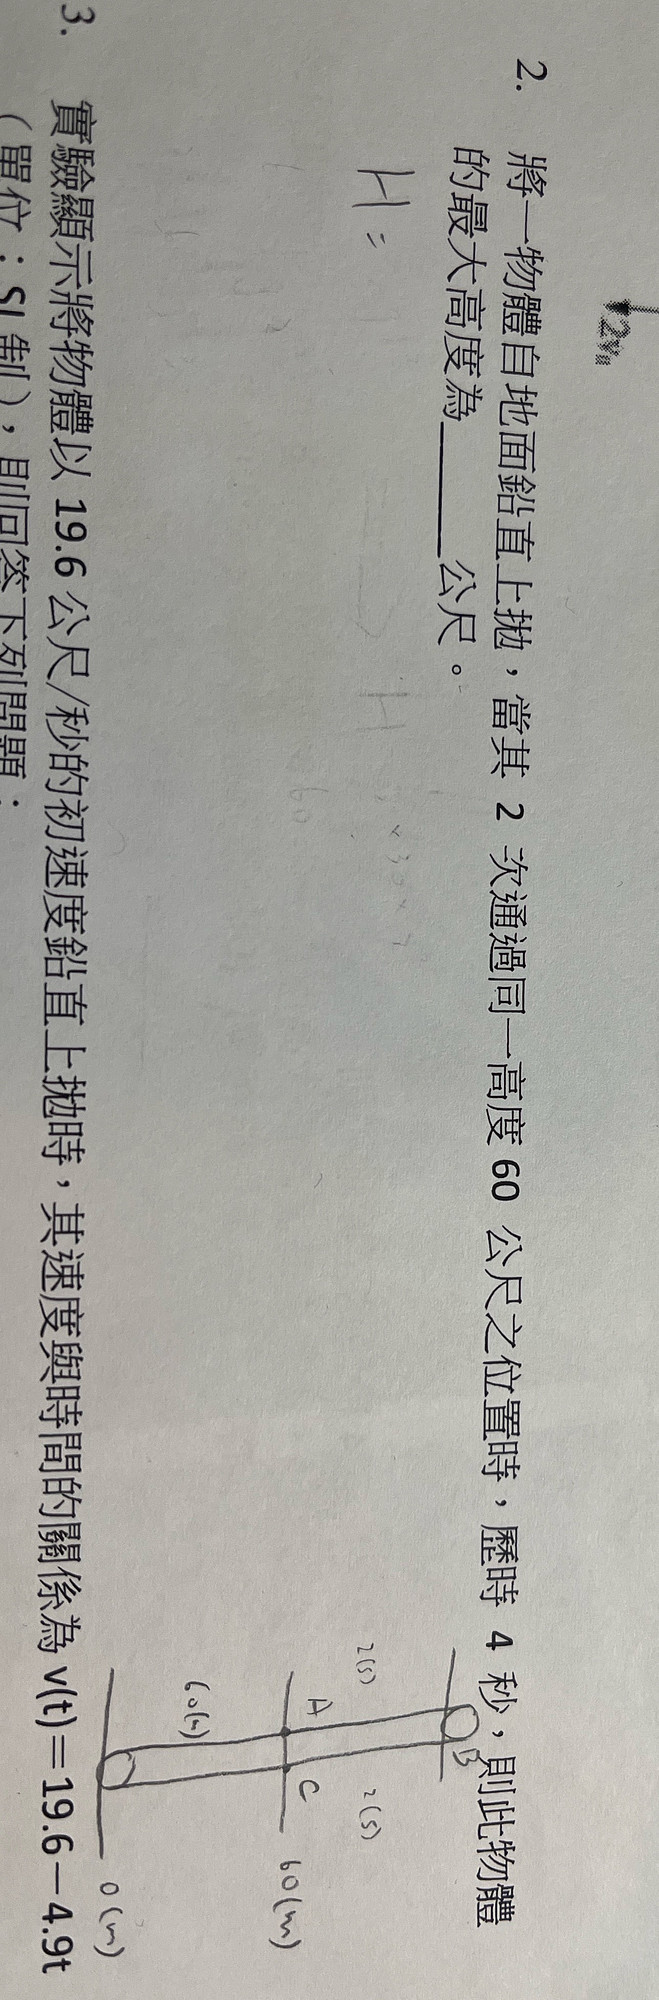 2v₀
2. 將一物體自地面鉛直上拋，當其 2 次通過同一高度 60 公尺之位置時，歷時 4 秒，則此物體
的最大高度為______公尺。
H =
B
2(s)
2(s)
A
C
60(m)
60(m)
0(m)
3. 實驗顯示將物體以 19.6 公尺/秒的初速度鉛直上拋時，其速度與時間的關係為 v(t)＝19.6－4.9t
（單位：SI 制），則回答下列問題：